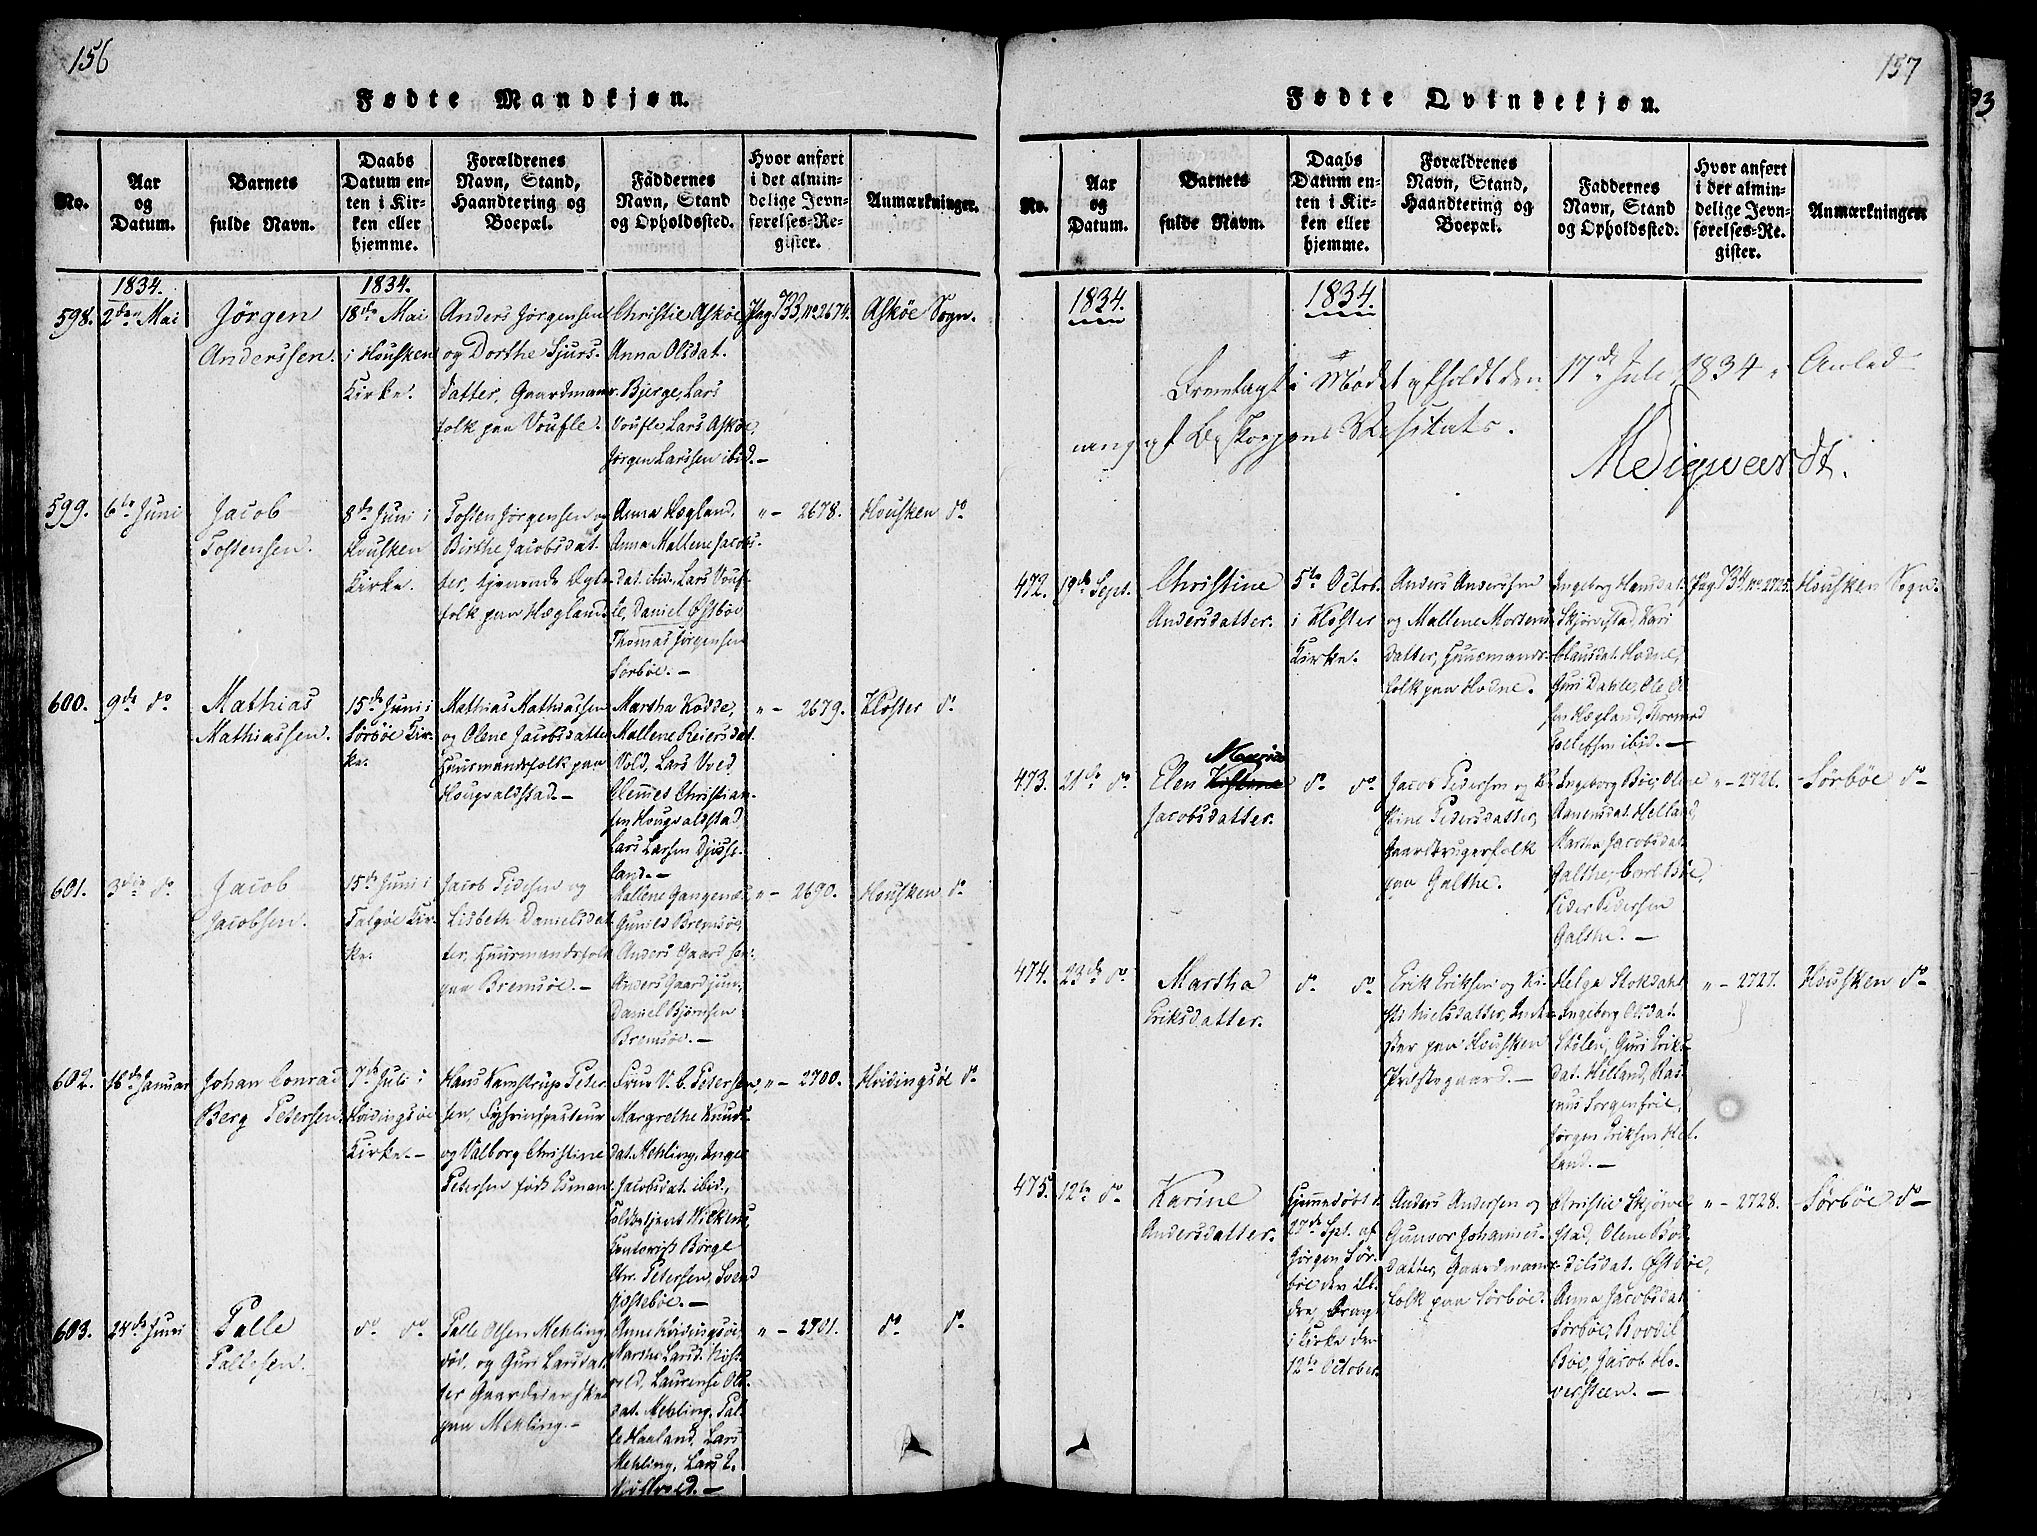 156
Fødte Mandkjøn.
No.
Aar
og
Datum.
Barnets
fulde Navn.
Daabs
Datum en-
ten i Kir-
ken eller
hjemme.
Forældrenes
Navn, Stand,
Haandtering og
Boepæl.
Fadderne​s
Navn, Stand
og Opholdssted.
Hvor anført
i det almin-
delige Jevn-
førelses-Re-
gister.
Anmærkninger.
1834.
1834.
598.
2den Mai
Jørgen
Anderssen.
18de Mai
i Housken
Kirke.
Anders Jørgensen
og Dorthe Sjurs-
datter, Gaardmand-
folk paa Voufle.
Christie Askøe,
Anna Olsdat.
Bjerge, Lars
Voufle, Lars Askøe,
Jørgen Larssen ibid. —
Pag. 733, No 2674.
Askøe Sogn.
599.
6te Juni
Jacob
Tostensen.
8de Juni i
Housken
Kirke.
Tosten Jørgensen og
Birthe Jacobsdat-
ter, tjenende Ægte-
folk paa Hægland
Anna Hægland,
Anna Mallene Jacobs-
dat. ibid., Lars Vouf-
le, Daniel Østbøe
Thomas Jørgensen
Sørbøe. —
" — 2678.
Housken do
600.
9de do
Mathias
Mathiassen.
15de Juni i
Sørbøe Kir-
ke.
Mathias Mathiassen
og Olene Jacobsdatter
Huusmandsfolk paa
Hougvaldstad. —
Martha Kodde,
Mallene Reiersdat.
Vold, Lars Voed,
Clemes Christian-
sen Hougvaldstad
Lars Larsen
land. —
" — 2679.
Kloster do
601.
3die do
Jacob
Jacobsen.
15de Juni i
Talgøe Kir-
ke.
Jacob Pedersen og
Lisbeth Danielsdat-
ter, Huusmandsfolk
paa Bremsøe. —
Mallene Gangenæs,
Gunild Bremsøe,
Anders Gaard sen:,
Anders Gaard jun:,
Daniel Bjørnsen
Bremsøe. —
" — 2690.
Housken do
602.
16de Januar
Johan Conrad
Berg Petersen.
7de Juli i
Hvidingsøe
Kirke. —
Hans Kamstrup Peter-
sen, Fyhrinspecteur
og Valborg Christine
Petersen født Esman
Frue V. C. Petersen,
Margrethe Knuds-
dat. Mehling, Inger
Jacobsdat. ibid.,
Toldbetjent Wickens,
Contorist Børge
Chr. Petersen, Svend
Jostebøe. —
" — 2700.
Hvidingsøe do
603.
24de Juni
Palle
Pallesen.
do do
Palle Olsen Mehling
død, og Guri Larsdat-
ter Gaardeierske
paa Mehling. —
Anne Hvidingsøe,
Marthe Larsd.
Laurense Ols-
dat. Mehling, Pal-
le Haaland, Lars
Mehling, Lars L.
" — 2701.
do do
157
Fødte Qvindekjøn.
No.
Aar
og
Datum.
Barnets
fulde Navn.
Daabs
Datum en-
ten i Kir-
ken eller
hjemme.
Forældrenes
Navn, Stand,
Haandtering og
Boepæl.
Faddernes
Navn, Stand
og Opholdssted.
Hvor anført
i det almin-
delige Jevn-
førelses-Re-
gister.
Anmærkninger.
1834.
1834.
Fremlagt i Mødet afholdt den 17de Juli 1834 i Anled-
ning af Biskoppens Visitats.
472.
19de Sept.
Christine
Andersdatter.
5te Octob.
i Kloster
Kirke.
Anders Andersen
og Mallene Mortens-
datter, Huusmands-
folk paa Hodne.
Ingeborg Hansdat.
Skjørvestad, Kari
Clausdat. Hodne,
Guri Dahle, Ole Ol-
sen Hægland, Thormod
Tollefsen ibid. —
Pag. 734, No. 2725.
Housken Sogn.
473.
21de do
Maria
Elen Kistine
Jacobsdatter.
do do
Jacob Pedersen og Ki-
stine Pedersdatter,
Gaardbrugerfolk
paa Galthe.
Ingeborg Bøe, Olene
Rasmusdat. Helland,
Martha Jacobsdat.
Galthe, Carl Bøe,
Peder Pedersen
Galthe. —
" — 2726.
Sørbøe do
474.
23de do
Martha
Eriksdatter.
do do
Erik Eriksen og Ki-
sti Nielsdatter, Inder-
ster paa Housken
Præstegaard. —
Helga Stoksdahl
Ingeborg Olsdat.
Stølen, Guri Eriks-
dat. Helland, Ras-
mus Sorgenfrie,
Jørgen Eriksen Hel-
land. —
" — 2727.
Housken do
475.
12te do
Karine
Andersdatter.
Hjemmedøbt d.
27de Sept. af
Jørgen Sør-
bøe den æl-
dre, bragt
i Kirke den
12te October.
Anders Andersen og
Gunvor Johannes-
datter, Gaardmands-
folk paa Sørbøe.
Christie Skjørve-
stad, Olene Bod-
dilsdat. Østbøe,
Anna Jacobsdat.
Sørbøe, Boedil
Bøe, Jacob Ho-
versteen. —
" — 2728.
Sørbøe do